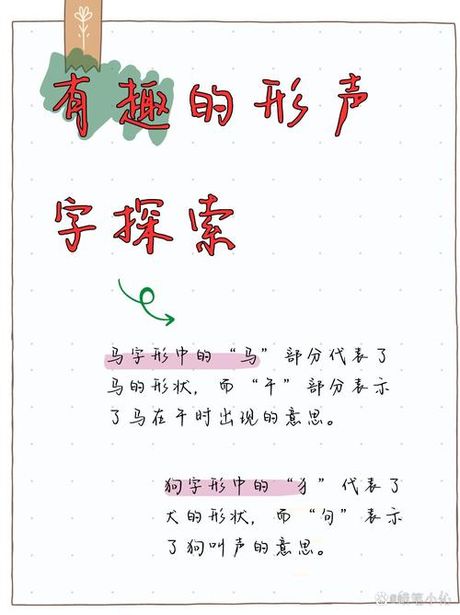 有趣的形声
字探索
马字形中的“马”部分代表了
马的形状，而“午”部分表示
了马在午时出现的意思。
狗字形中的“犭”代表了
犬的形状，而“句”表示
了狗叫声的意思。